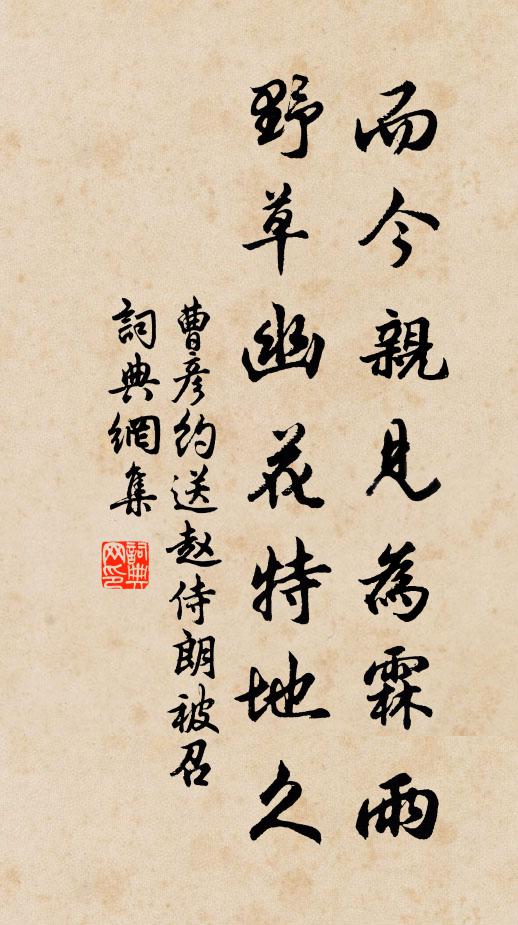 而今親見為霖雨
野草幽花特地久
曹彦約送赵侍朗被召
詞典網集
詞典
网印